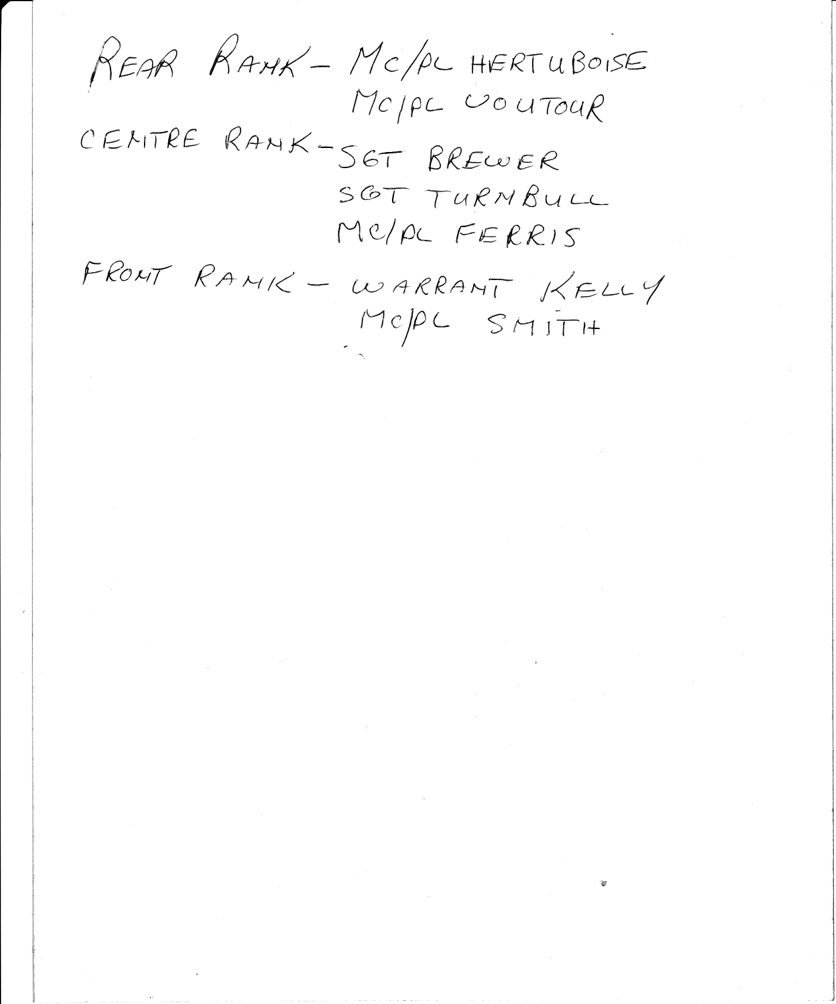 REAR RANK - MC/PL HERTUBOISE
MC/PL VOUTOUR
CENTRE RANK - SGT BREWER
SGT TURNBULL
MC/PL FERRIS
FRONT RANK - WARRANT KELLY
MC/PL SMITH